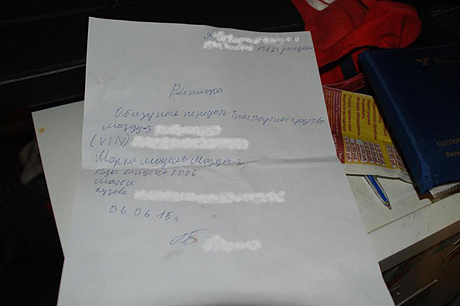 Я
1982г рождения
Расписка
Обязуюсь передать Транспортное средство
мазду-3
(VIN)
Марка модель Мазда 3
года выпуска 2006
шасси
кузова
06 06 15г.